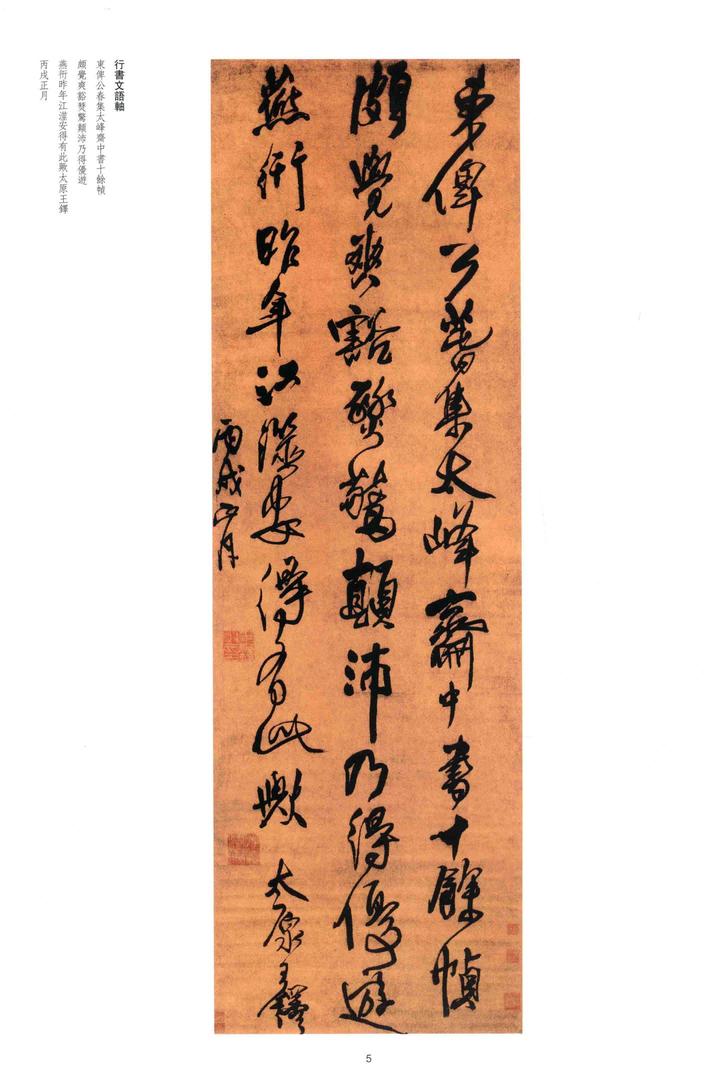 東俾公春集太峰齋中書十餘幀
頗覺爽豁燹驚顛沛乃得優遊
燕衎昨年江澨安得有此歟太原王鐸
丙戌正月
行書文語軸
東俾公春集太峰齋中書十餘幀
頗覺爽豁燹驚顛沛乃得優遊
燕衎昨年江澨安得有此歟太原王鐸
丙戌正月
5